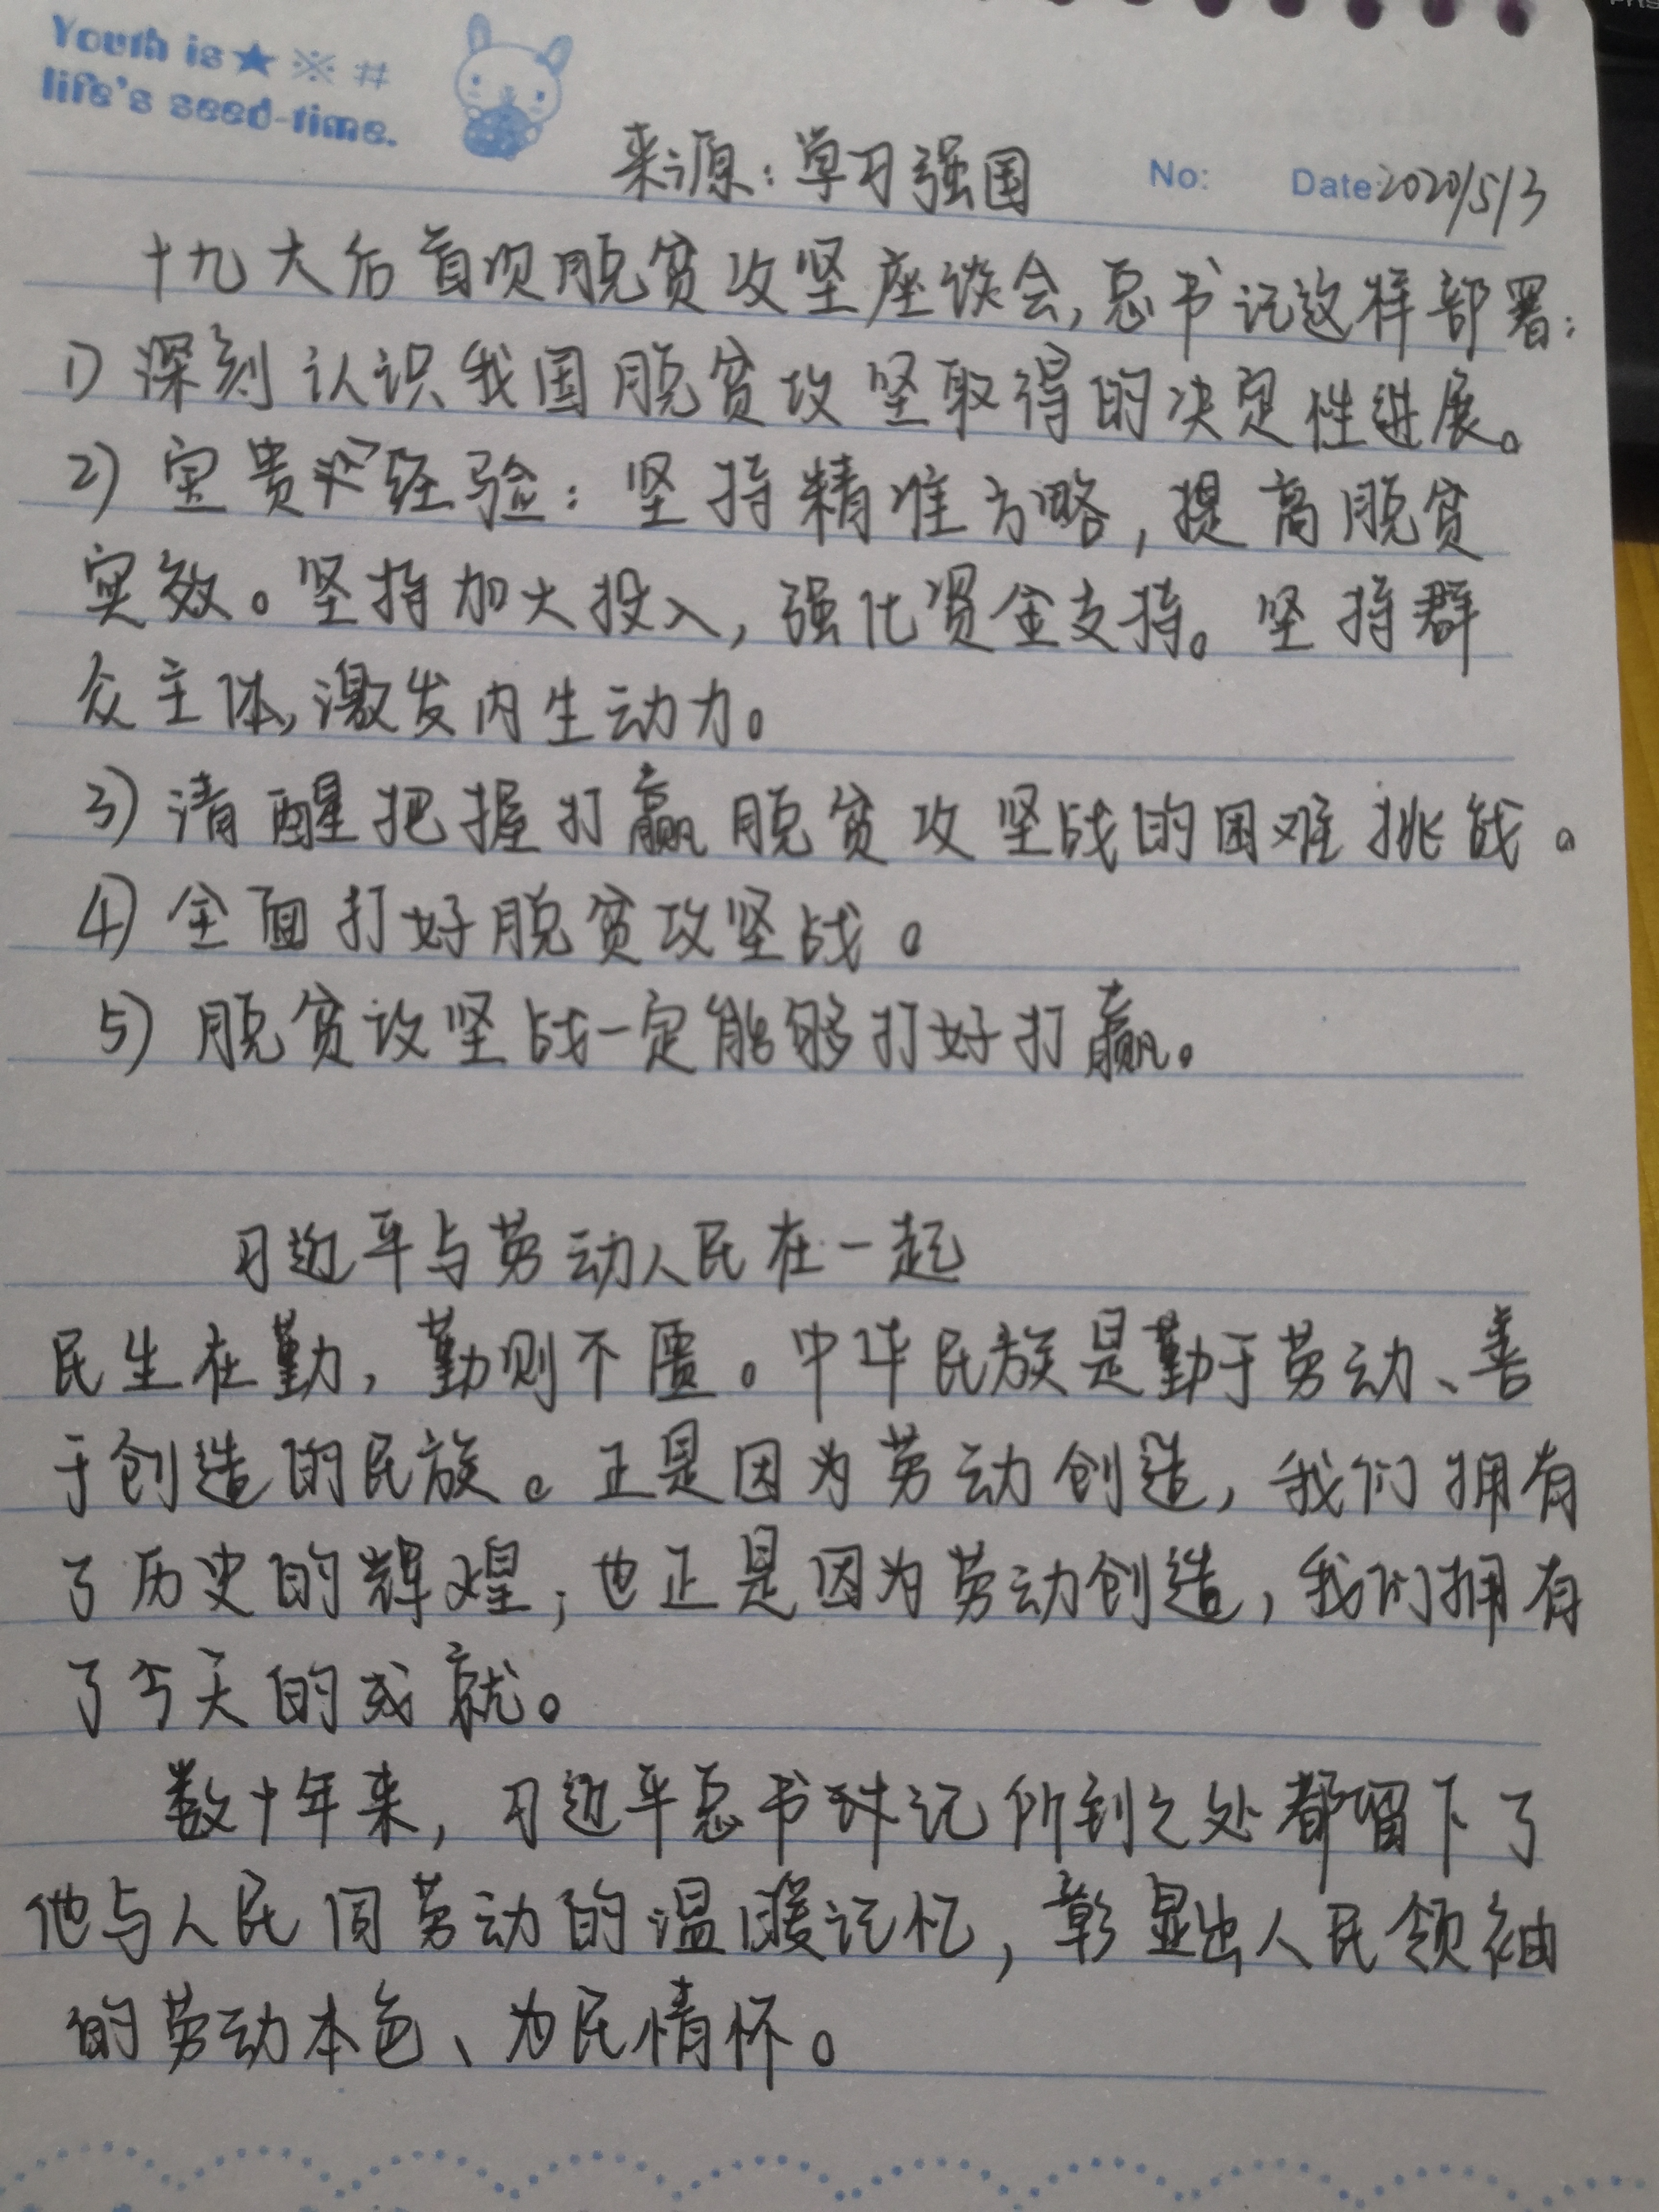 Youth is ★ ※ #
life's seed-time.
来源：学习强国 No: Date: 2020/5/3
十九大后首次脱贫攻坚座谈会，总书记这样部署：
1）深刻认识我国脱贫攻坚取得的决定性进展。
2）宝贵经验：坚持精准方略，提高脱贫
实效。坚持加大投入，强化资金支持。坚持群
众主体，激发内生动力。
3）清醒把握打赢脱贫攻坚战的困难挑战。
4）全面打好脱贫攻坚战。
5）脱贫攻坚战一定能够打好打赢。
习近平与劳动人民在一起
民生在勤，勤则不匮。中华民族是勤于劳动、善
于创造的民族。正是因为劳动创造，我们拥有
了历史的辉煌；也正是因为劳动创造，我们拥有
了今天的成就。
数十年来，习近平总书记所到之处都留下了
他与人民同劳动的温暖记忆，彰显出人民领袖
的劳动本色、为民情怀。